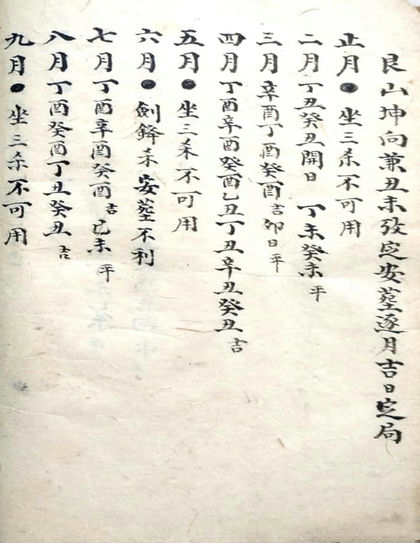 艮山坤向兼丑未發定安葬逐月吉日定局
正月●坐三杀不可用
二月丁丑癸丑開日 丁未癸未平
三月辛酉丁酉癸酉吉卯日平
四月丁酉辛酉癸酉乙丑丁丑辛丑癸丑吉
五月●坐三杀不可用
六月●劍鋒杀安葬不利
七月丁酉辛酉癸酉吉己未平
八月丁酉癸酉丁丑癸丑吉
九月●坐三杀不可用